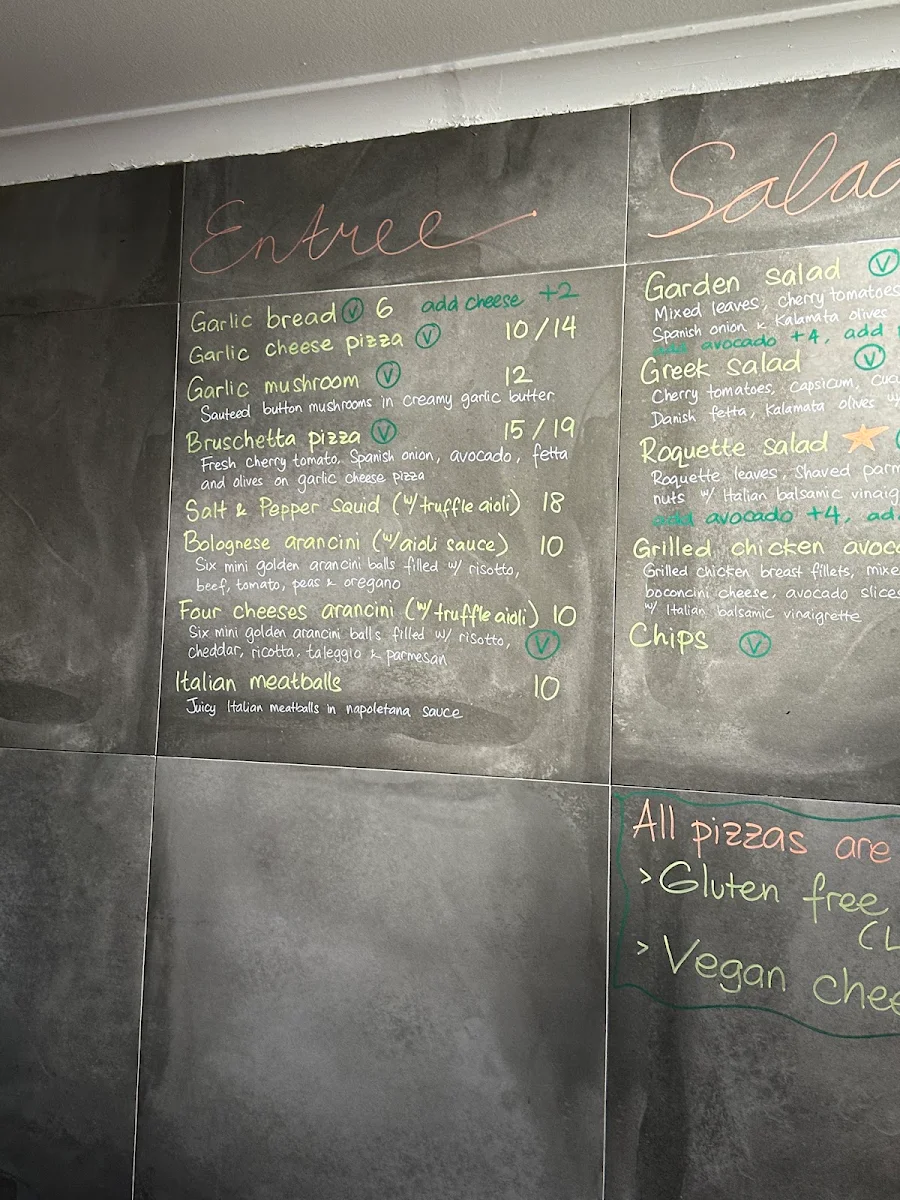 Entree
Garlic bread V 6 add cheese +2
Garlic cheese pizza V 10/14
Garlic mushroom V 12
Sauteed button mushrooms in creamy garlic butter
Bruschetta pizza V 15/19
Fresh cherry tomato, Spanish onion, avocado, fetta
and olives on garlic cheese pizza
Salt & Pepper Squid (w/ truffle aioli) 18
Bolognese arancini (w/ aioli sauce) 10
Six mini golden arancini balls filled w/ risotto,
beef, tomato, peas & oregano
Four cheeses arancini (w/ truffle aioli) 10
Six mini golden arancini balls filled w/ risotto, V
cheddar, ricotta, taleggio & parmesan
Italian meatballs 10
Juicy Italian meatballs in napoletana sauce
Salad
Garden salad V
Mixed leaves, cherry tomatoes
Spanish onion & Kalamata olives
add avocado +4, add
Greek salad V
Cherry tomatoes, capsicum, cuc
Danish fetta, Kalamata olives w/
Roquette salad
Roquette leaves, Shaved parm
nuts w/ Italian balsamic vinaig
add avocado +4, ad
Grilled chicken avoc
Grilled chicken breast fillets, mixe
boconcini cheese, avocado slices
w/ Italian balsamic vinaigrette
Chips V
All pizzas are
>Gluten free
(L
>Vegan chee